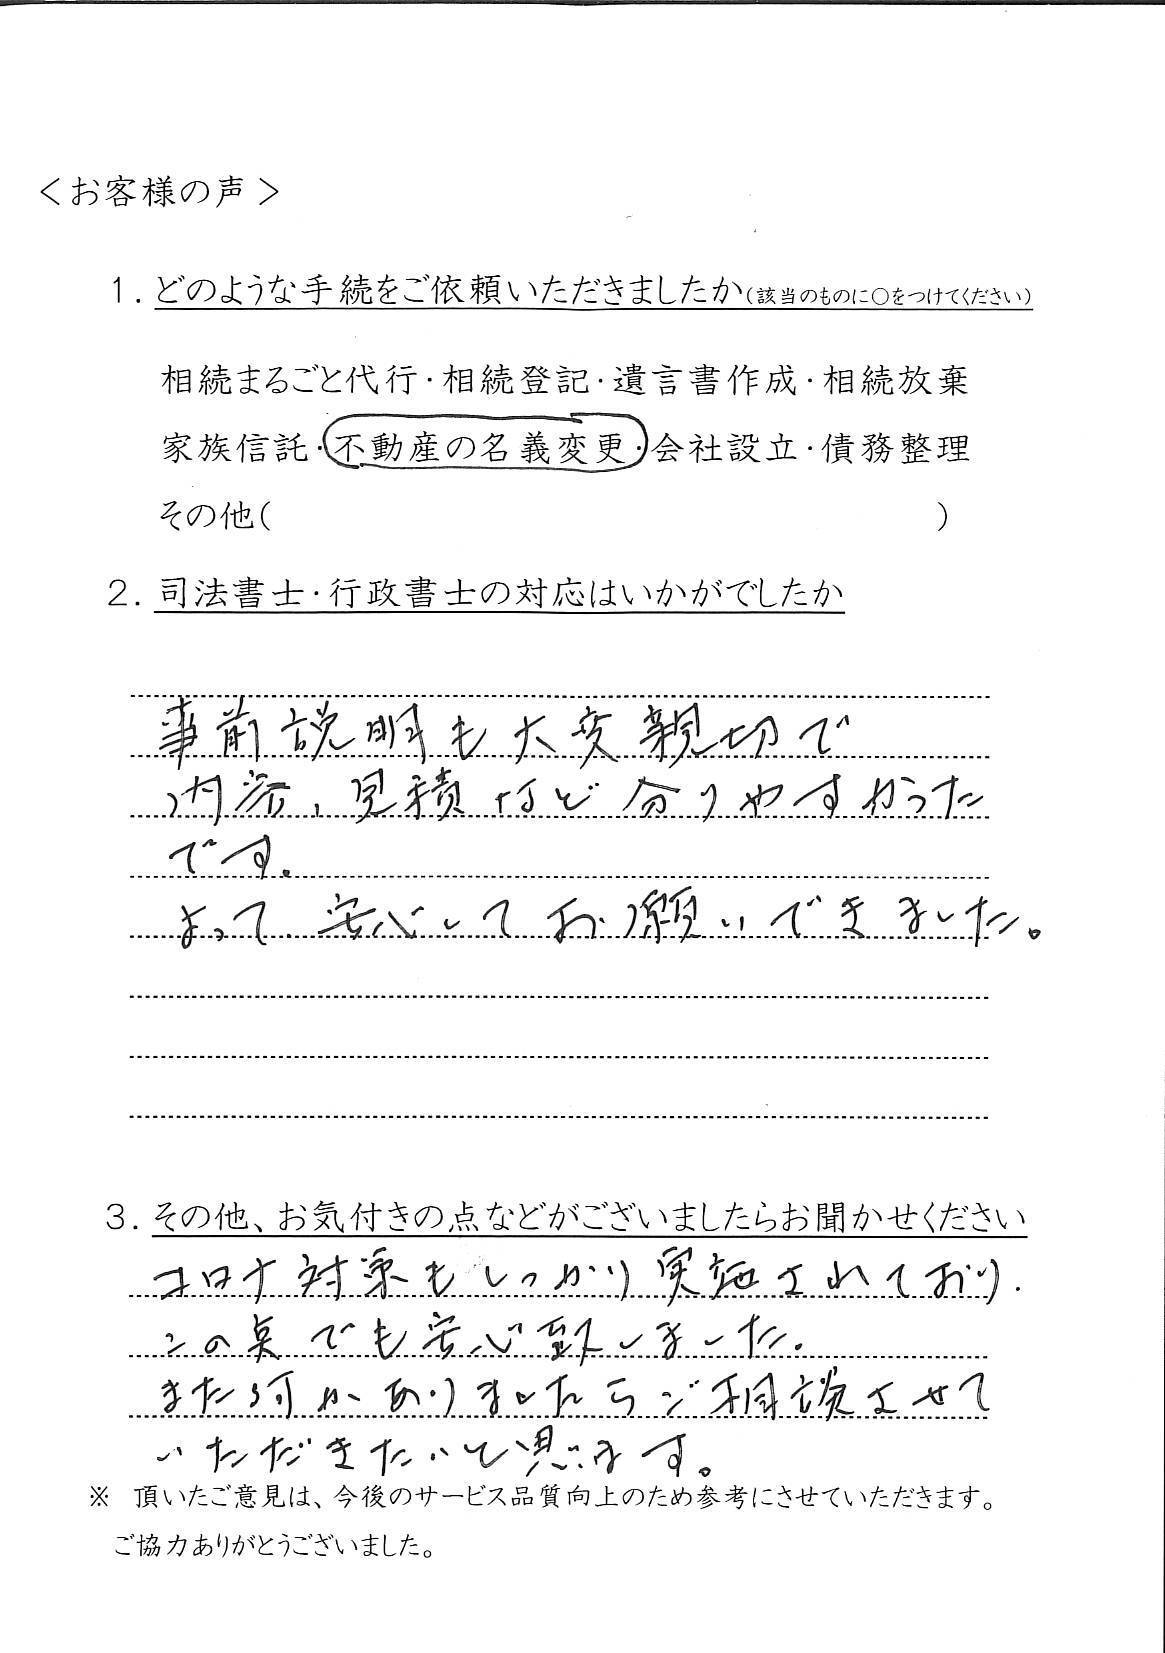 ＜お客様の声＞
1. どのような手続をご依頼いただきましたか(該当のものに○をつけてください)
相続まるごと代行・相続登記・遺言書作成・相続放棄
家族信託・不動産の名義変更・会社設立・債務整理
その他( )
2. 司法書士・行政書士の対応はいかがでしたか
事前説明も大変親切で
内容、見積など分りやすかった
です。
よって安心してお願いできました。
3. その他、お気付きの点などがございましたらお聞かせください
コロナ対策もしっかり実施されており、
この点でも安心致しました。
また何かありましたらご相談させて
いただきたいと思います。
※ 頂いたご意見は、今後のサービス品質向上のため参考にさせていただきます。
ご協力ありがとうございました。